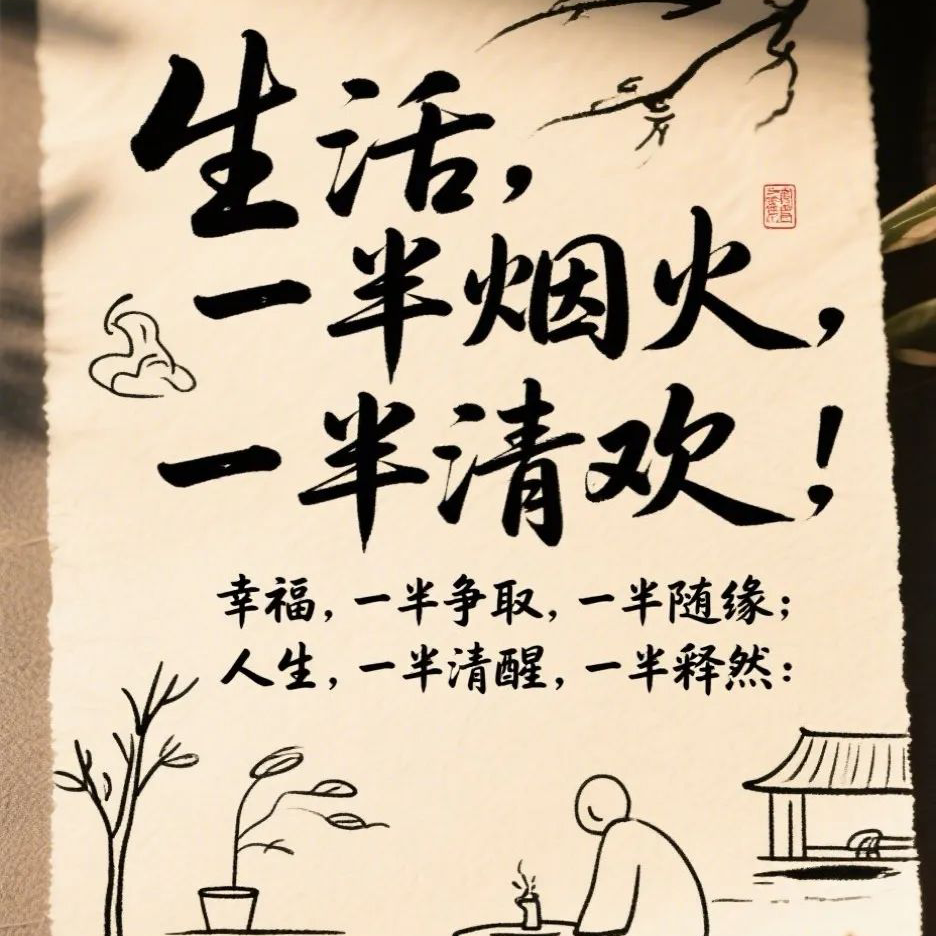 生活，
一半烟火，
一半清欢！
幸福，一半争取，一半随缘；
人生，一半清醒，一半释然：